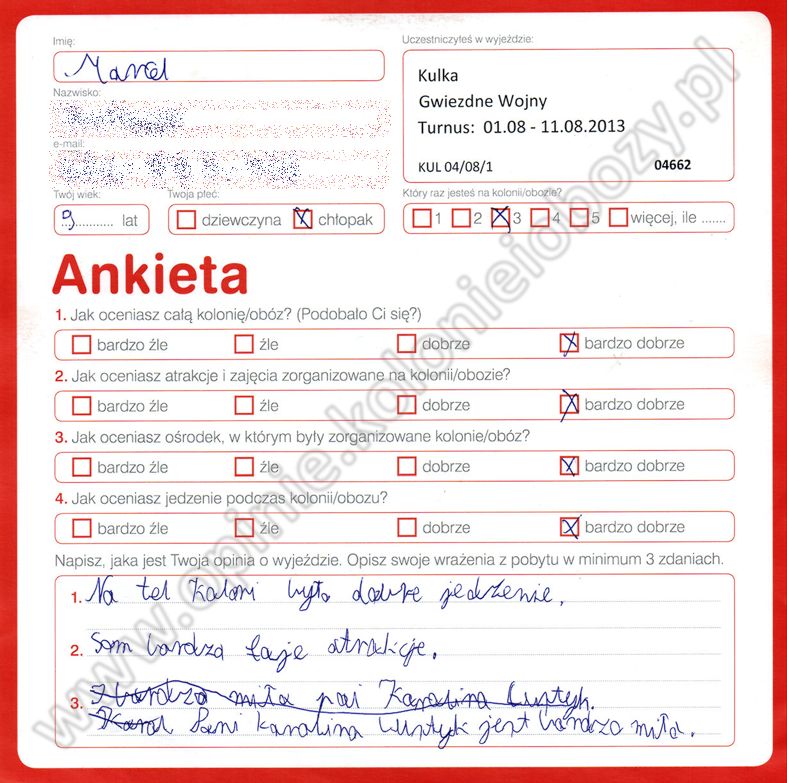 Imię:
Marcel
Nazwisko:
e-mail:
Twój wiek:
9 lat
Twoja płeć:
dziewczyna chłopak
Uczestniczyłeś w wyjeździe:
Kulka
Gwiezdne Wojny
Turnus: 01.08 - 11.08.2013
KUL 04/08/1 04662
Który raz jesteś na kolonii/obozie?
1 2 3 4 5 więcej, ile .......
Ankieta
1. Jak oceniasz całą kolonię/obóz? (Podobało Ci się?)
bardzo źle źle dobrze bardzo dobrze
2. Jak oceniasz atrakcje i zajęcia zorganizowane na kolonii/obozie?
bardzo źle źle dobrze bardzo dobrze
3. Jak oceniasz ośrodek, w którym były zorganizowane kolonie/obóz?
bardzo źle źle dobrze bardzo dobrze
4. Jak oceniasz jedzenie podczas kolonii/obozu?
bardzo źle źle dobrze bardzo dobrze
Napisz, jaka jest Twoja opinia o wyjeździe. Opisz swoje wrażenia z pobytu w minimum 3 zdaniach.
1. Na tel kaloni było dobre jedzenie.
2. Som bardza faje atrakcje.
3. I bardzo miła pai Karolina
Pani Karolina jest bardzo miła.
www.opinie.kolonieiobozy.pl